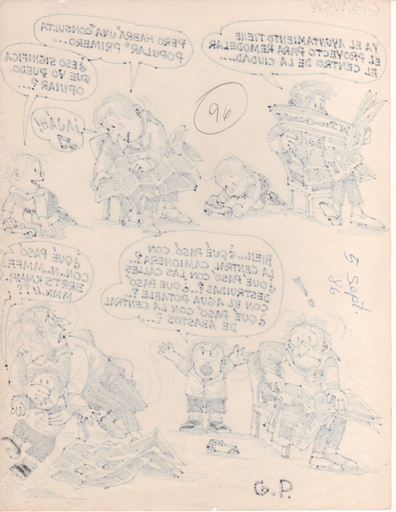 OPINION
YA EL AYUNTAMIENTO TIENE
EL PROYECTO PARA REMODELAR
EL CENTRO DE LA CIUDAD...
PERO HABRÁ UNA "CONSULTA
POPULAR" PRIMERO...
¿ESO SIGNIFICA
QUE YO PUEDO
OPINAR
...?
¡AJÁ!!
96
BIEN... ¿QUÉ PASÓ CON
LA CENTRAL CAMIONERA?
¿QUÉ PASÓ CON LAS CALLES
DESTRUIDAS..? ¿QUÉ PASÓ
CON EL AGUA POTABLE?
¿QUÉ PASÓ CON LA CENTRAL
DE ABASTOS ?...
¿QUÉ PASÓ
5 Sept.
86
G.P.